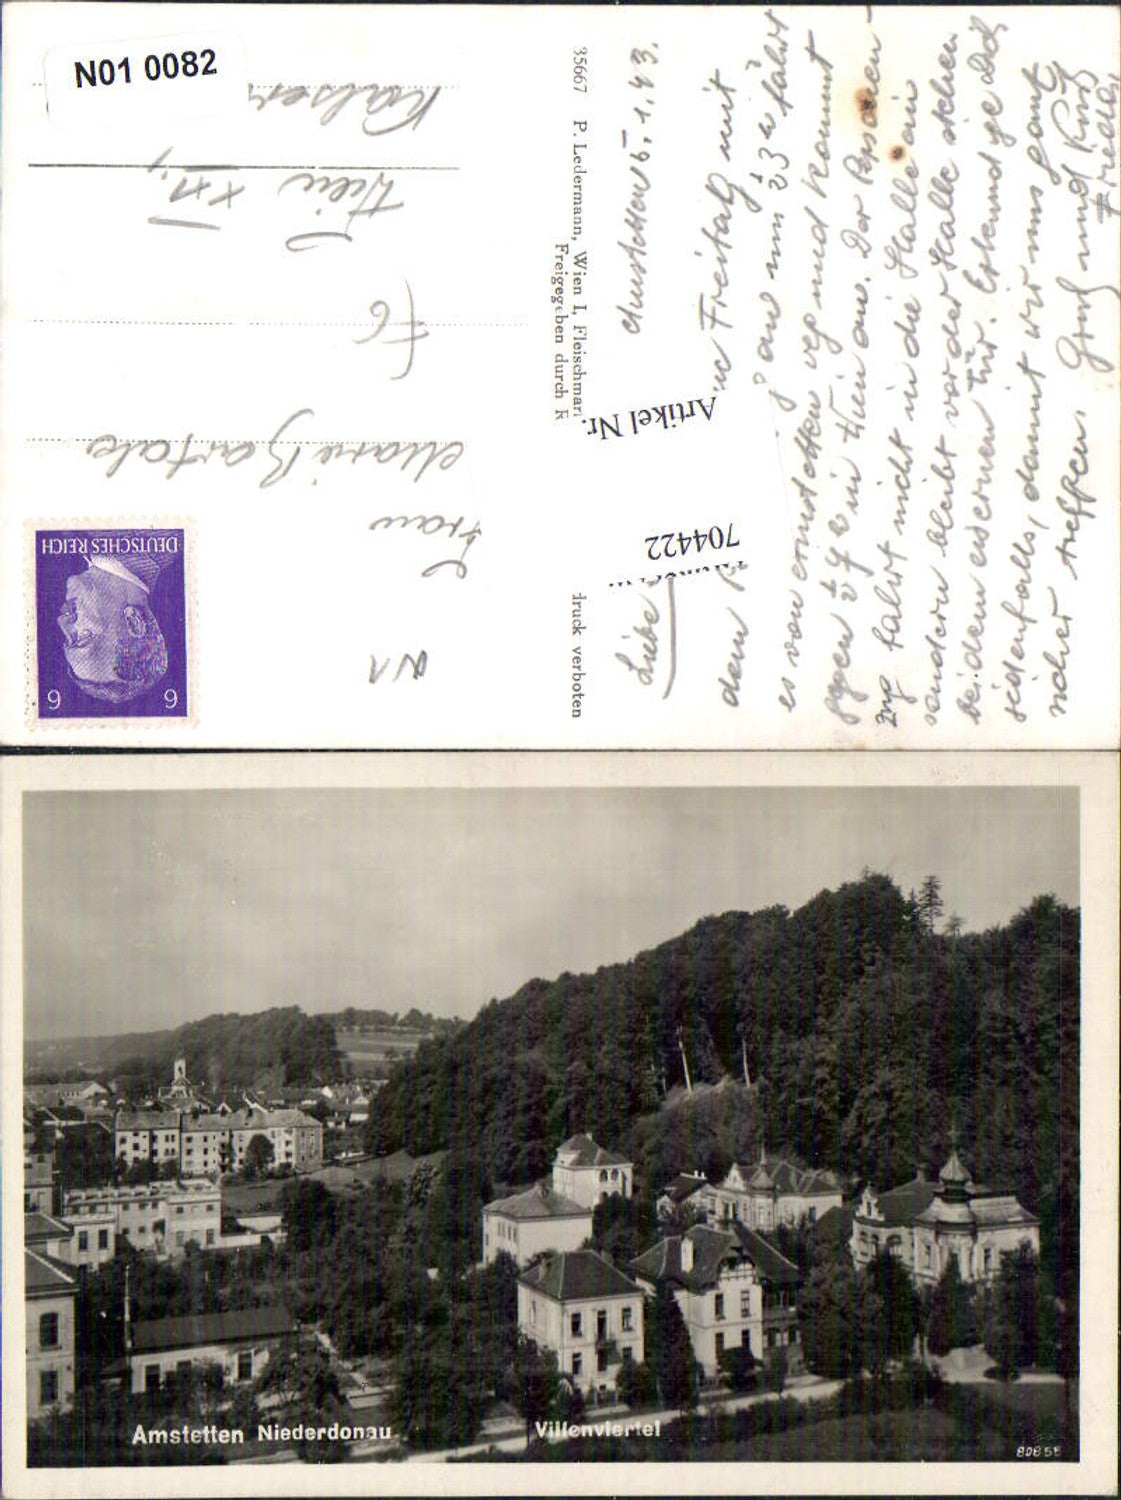 N01 0082
Wien XXI.
F6
Marie Bartak
Frau
N1
DEUTSCHES REICH
6 6
35667 P. Ledermann, Wien I, Fleischmar
Freigegeben durch R
druck verboten
Artikel Nr.
704422
Amstetten 5.1.43.
Liebe
dem Freitag mit
an um 23 h fährt
es von Amstetten weg und kommt
gegen in Wien an. Der Personen-
zug fährt nicht in die Halle ein
sondern bleibt vor der Halle stehen
bei dem eisernen Tür. Erkundige Dich
jedenfalls, damit wir uns ganz
sicher treffen. Gruß und Kuß
Friedl
Amstetten Niederdonau
Villenviertel
80855